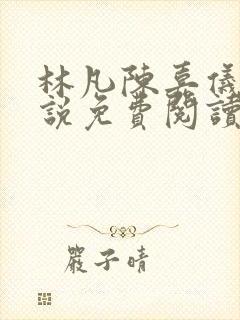 林凡陳嘉儀
說免費閱讀
嚴子晴